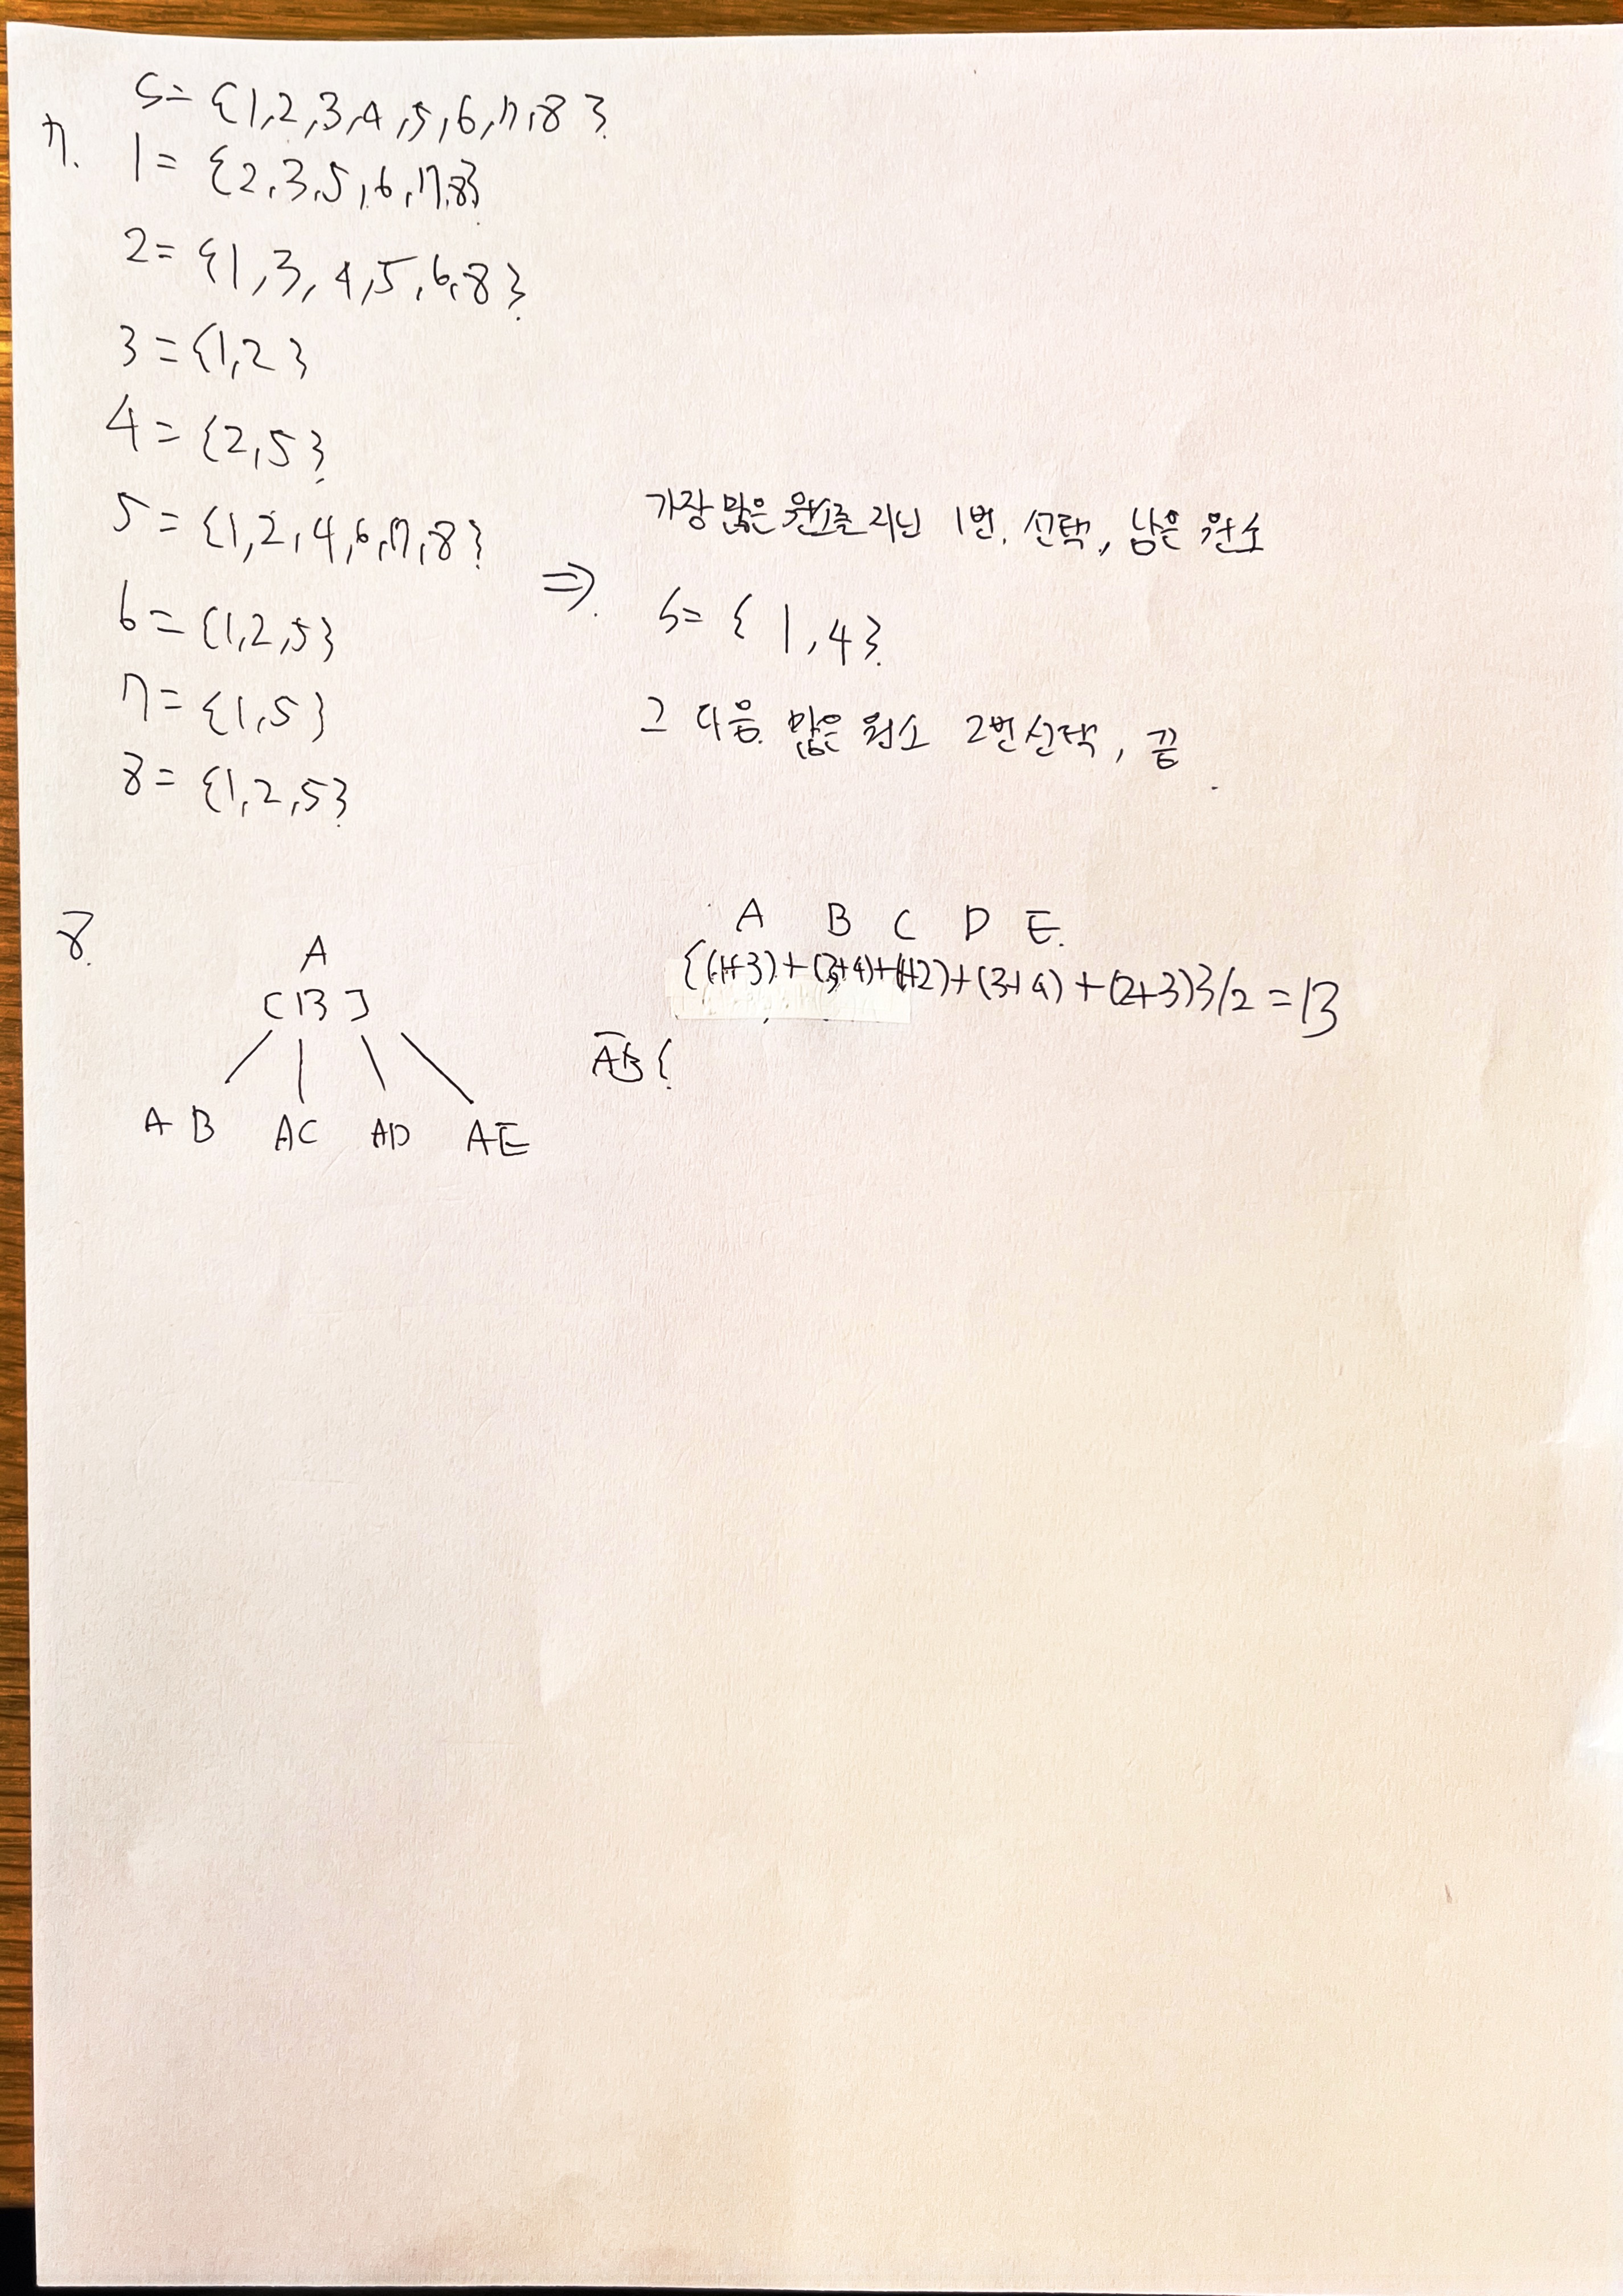 7. S= {1,2,3,4,5,6,7,8}
1= {2,3,5,6,7,8}
2= {1,3,4,5,6,8}
3={1,2}
4={2,5}
5={1,2,4,6,7,8}
6={1,2,5}
7={1,5}
8={1,2,5}
⇒ 가장 많은 원소를 지닌 1번. 선택, 남은 원소
S= {1,4}
그 다음 많은 원소 2번 선택, 끝.
8.
A
[13]
AB AC AD AE
A B C D E
{(1+3)+(3+4)+(1+2)+(3+4)+(2+3)}/2=13
AB {